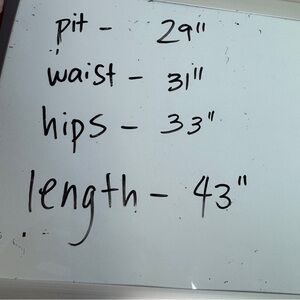 pit - 29"
waist - 31"
hips - 33"
length - 43"